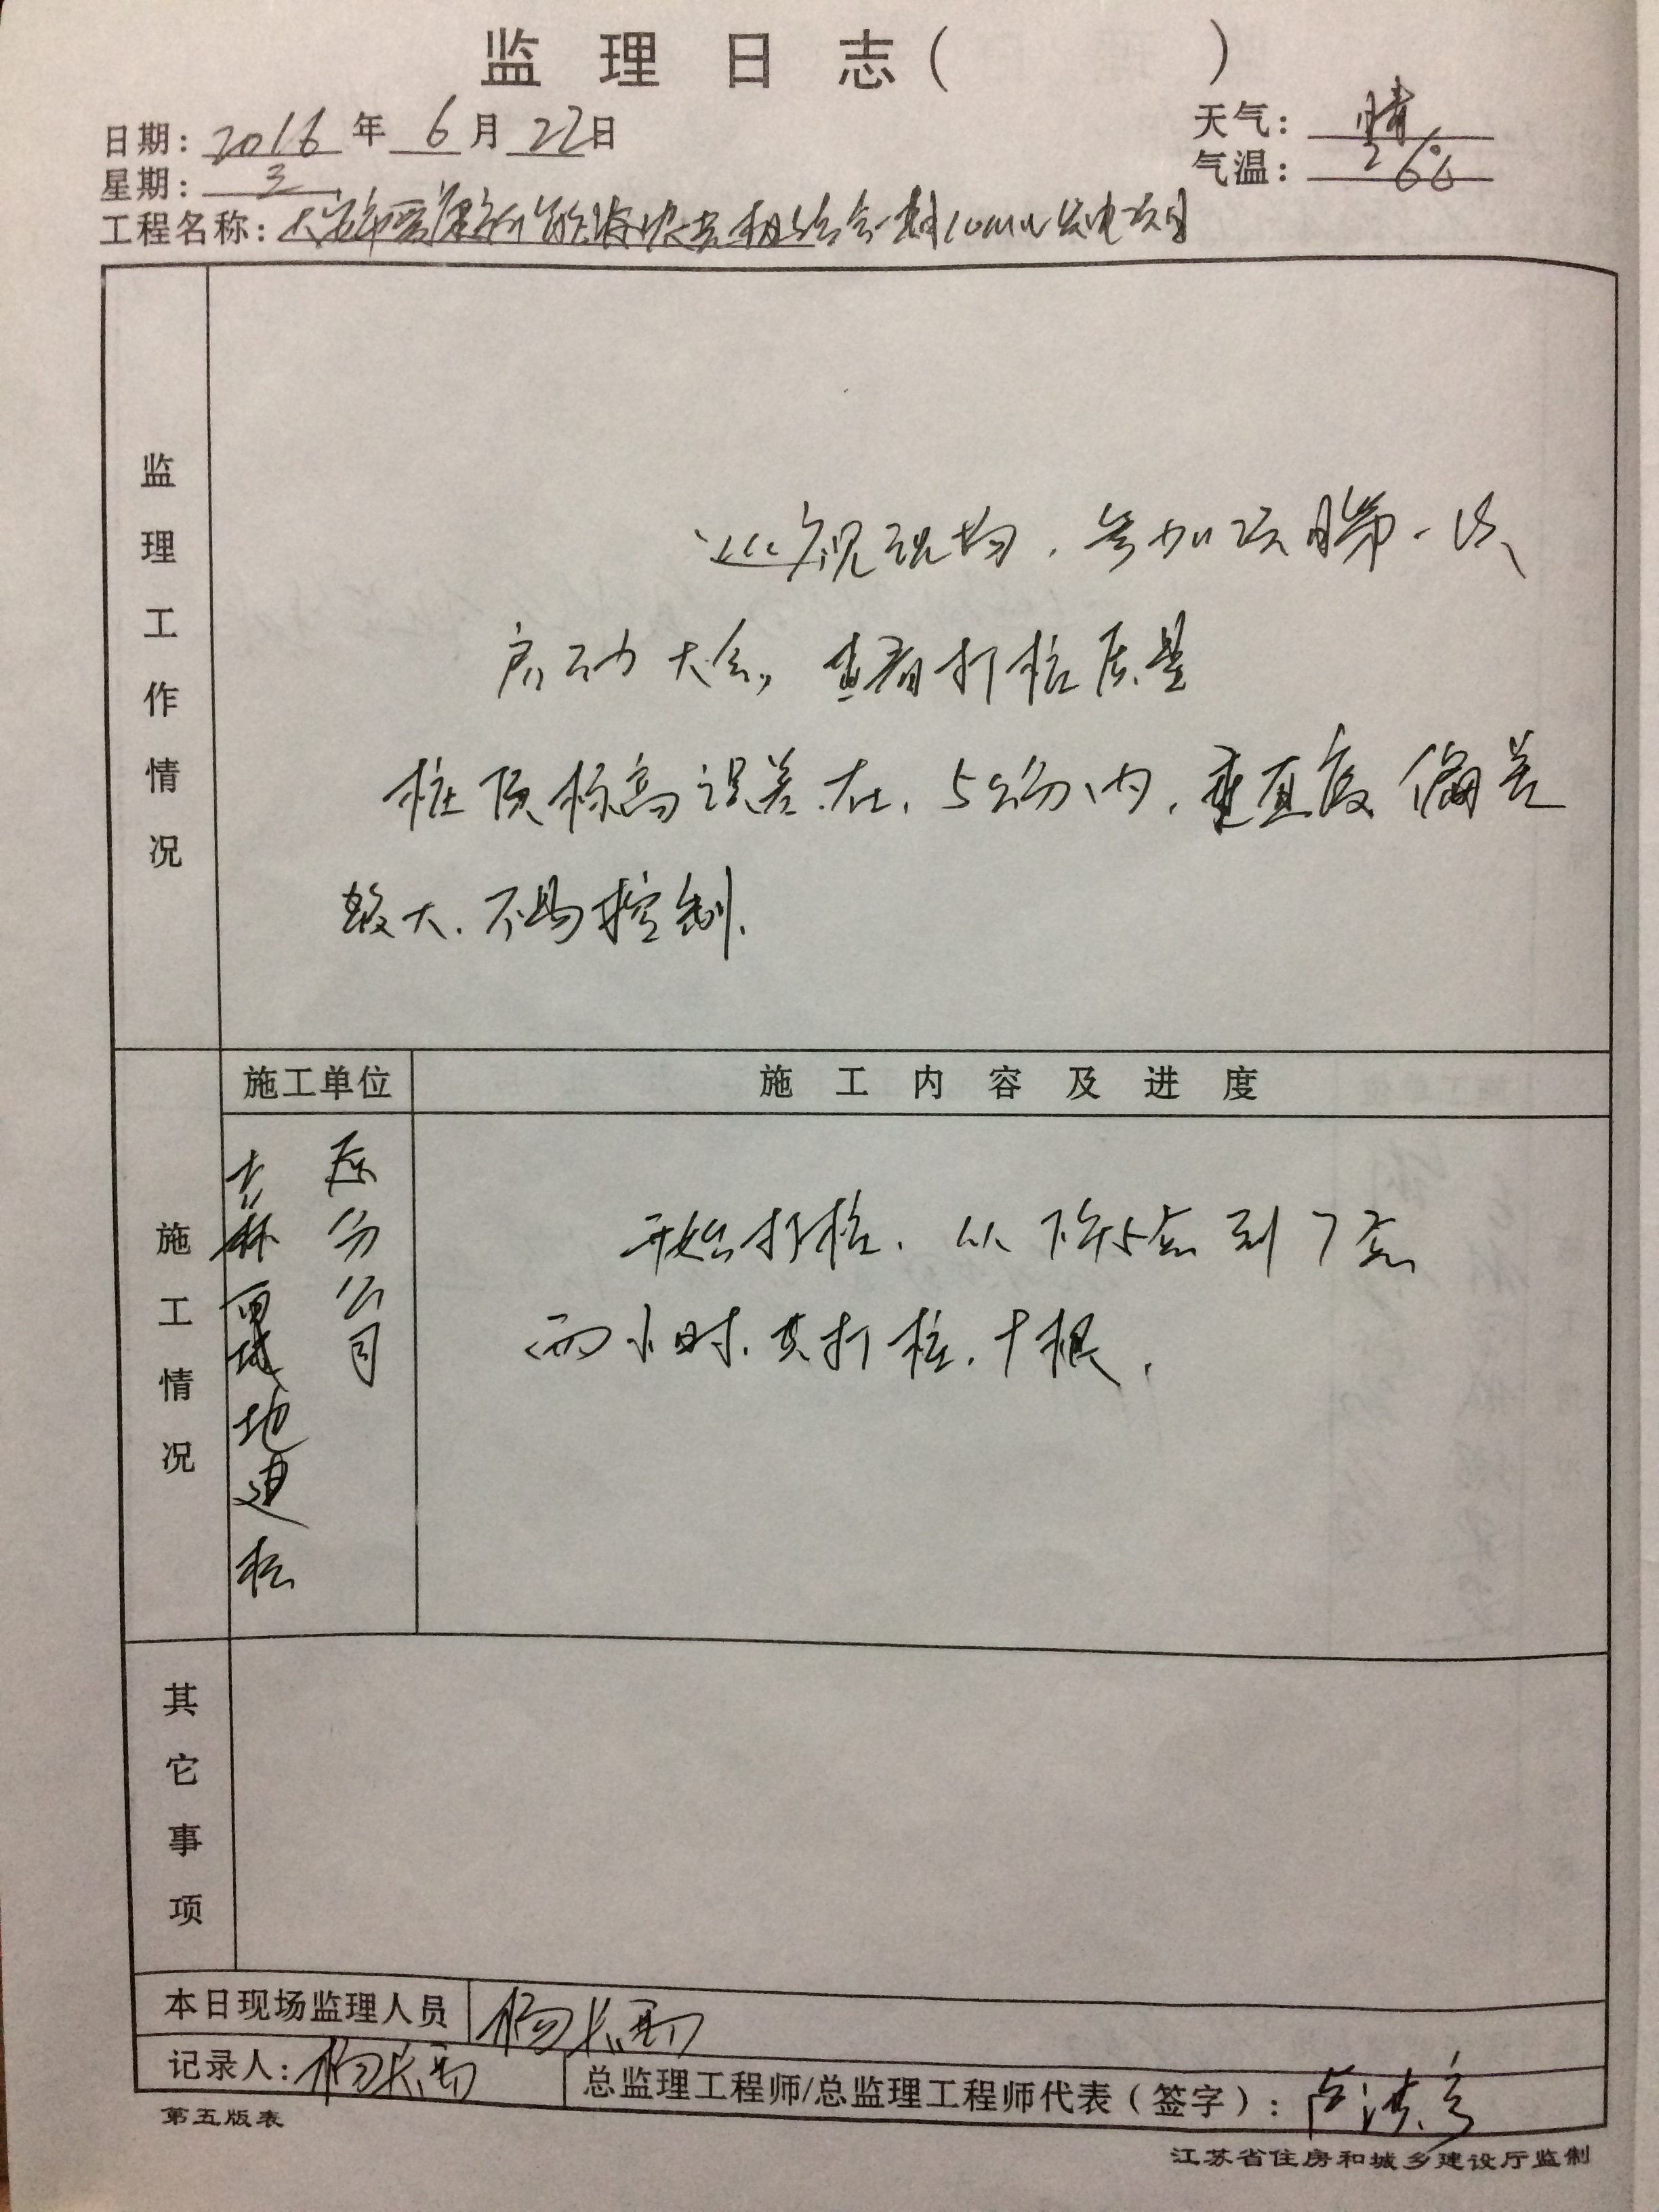 监理日志( )
日期: 2016 年 6 月 22 日
天气: 晴
星期: 三
气温: 26℃
工程名称: 大安市 新能源 10MW发电项目
监理工作情况
巡视现场,参加项目第一次
启动大会,查看打桩质量
桩顶标高误差在,5公分内,垂直度偏差
较大,不易控制.
施工情况
施工单位
施工内容及进度
吉林 地建 松
原分公司
开始打桩,从下午5点到7点
两小时,共打桩,十根,
其它事项
本日现场监理人员 杨长
记录人: 杨长
总监理工程师/总监理工程师代表(签字): 卢
第五版表
江苏省住房和城乡建设厅监制